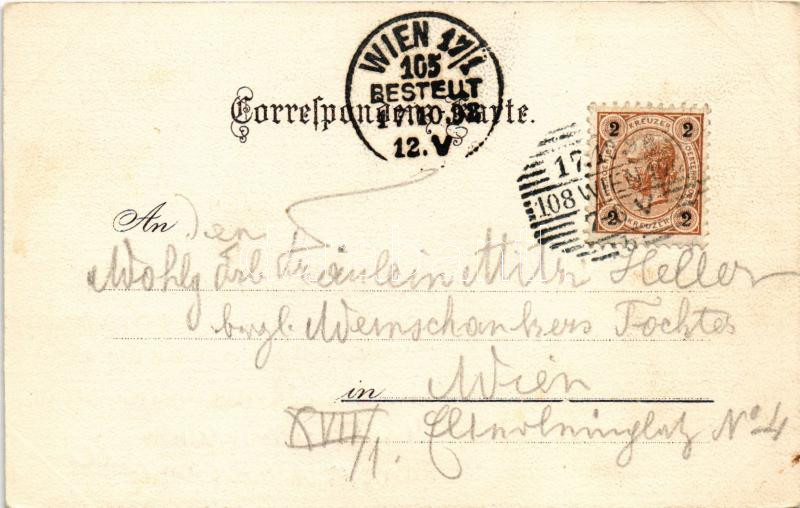 WIEN 17/1
105
BESTELLT
17.10.98
12.V
Correspondenz-Karte.
2 KREUZER 2
2 KREUZER 2
17.
108 WIEN
V
An Den
Wohlg Frl Fräulein Mitzi Heller
bzgl. Weinschankers Tochter
in Wien
XVII/1. No 4